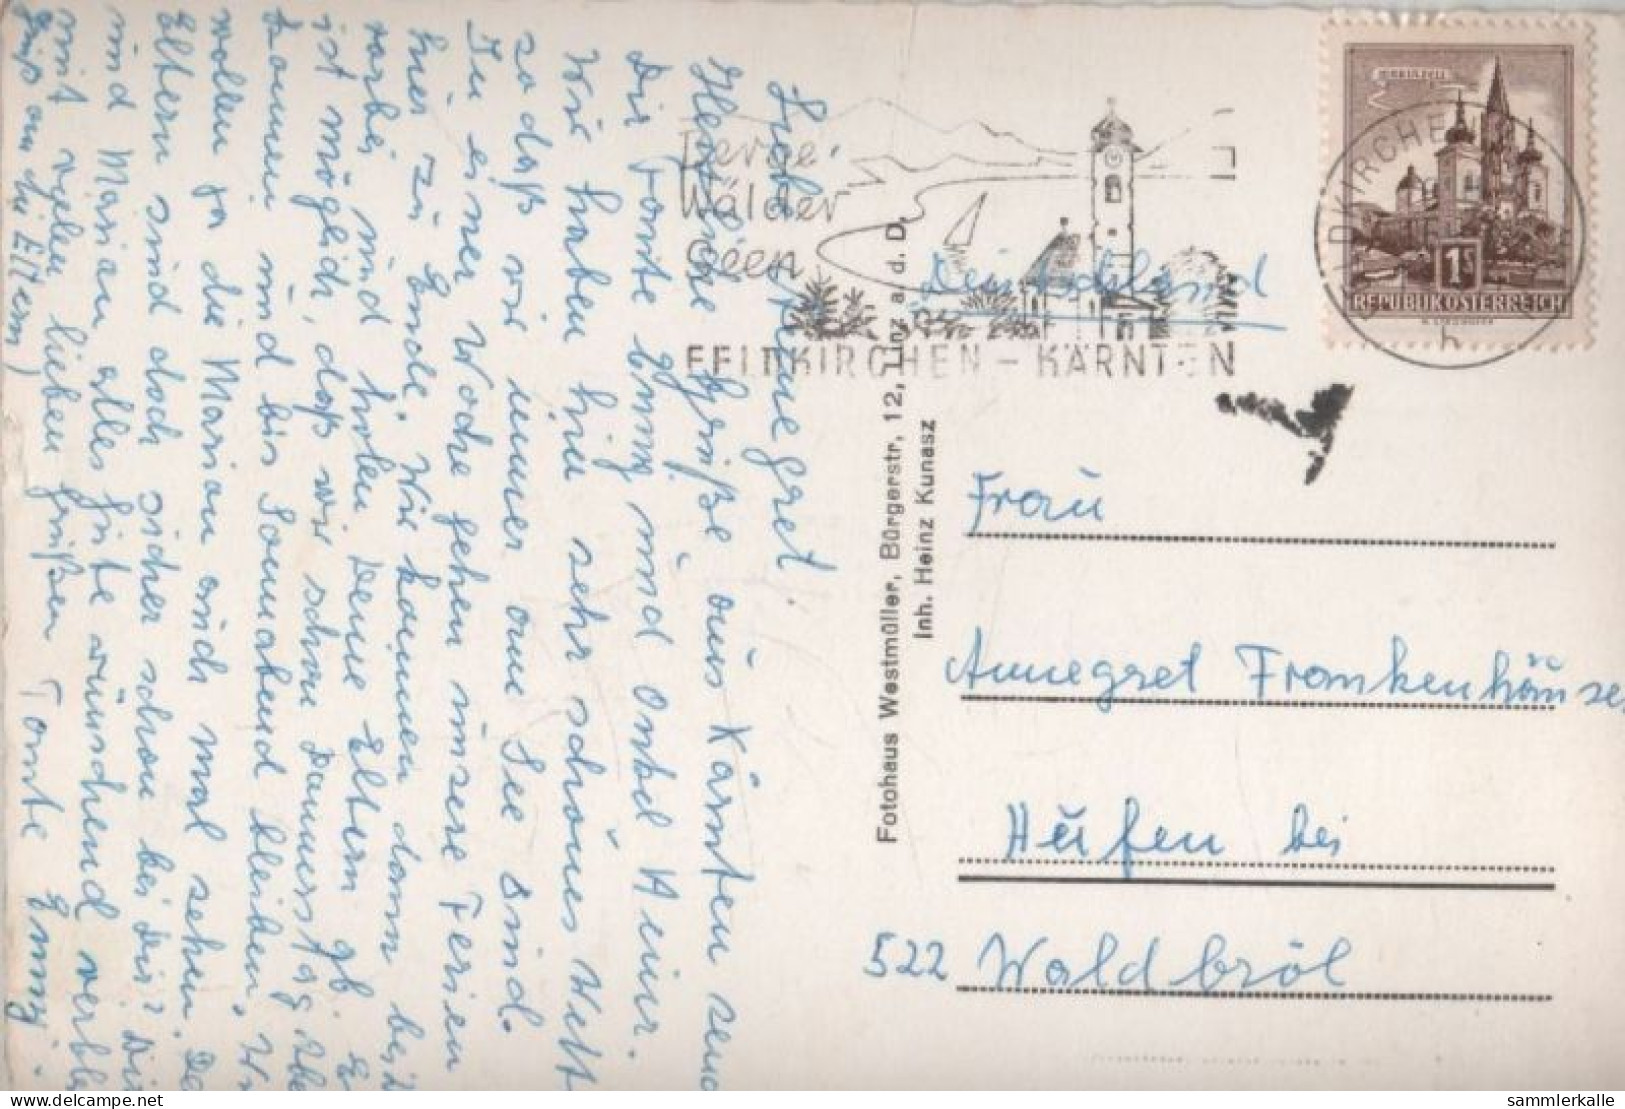 Liebe Annegret
Herzliche Grüße aus Kärnten send
Dir Tante Emmy und Onkel Heinr.
Wir haben hier sehr schönes Wett
sodaß wir immer am See sind.
In einer Woche gehen unsere Ferien
hier zu Ende. Wir kommen dann bei
vorbei und holen Deine Eltern gb. E
ist möglich, daß wir schon Donnerstag Abe
kommen und bis Sonnabend bleiben. W
wollen ja die Marion auch mal sehen. De
Eltern sind doch sicher schon bei Dir? Dir
und Marion alles Gute wünschend verbl
mit vielen lieben Grüßen Tante Emmy.
Gruß an die Eltern)
Berge
Wälder
Seen
FELDKIRCHEN - KÄRNTEN
MARIAZELL
1S
REPUBLIK ÖSTERREICH
LDKIRCHE
h
Deutschland
Fotohaus Westmüller, Bürgerstr, 12, Linz a. d. D.
Inh. Heinz Kunasz
Frau
Annegret Frankenhäuser
Hufen bei
522 Waldbröl
sammlerkalle